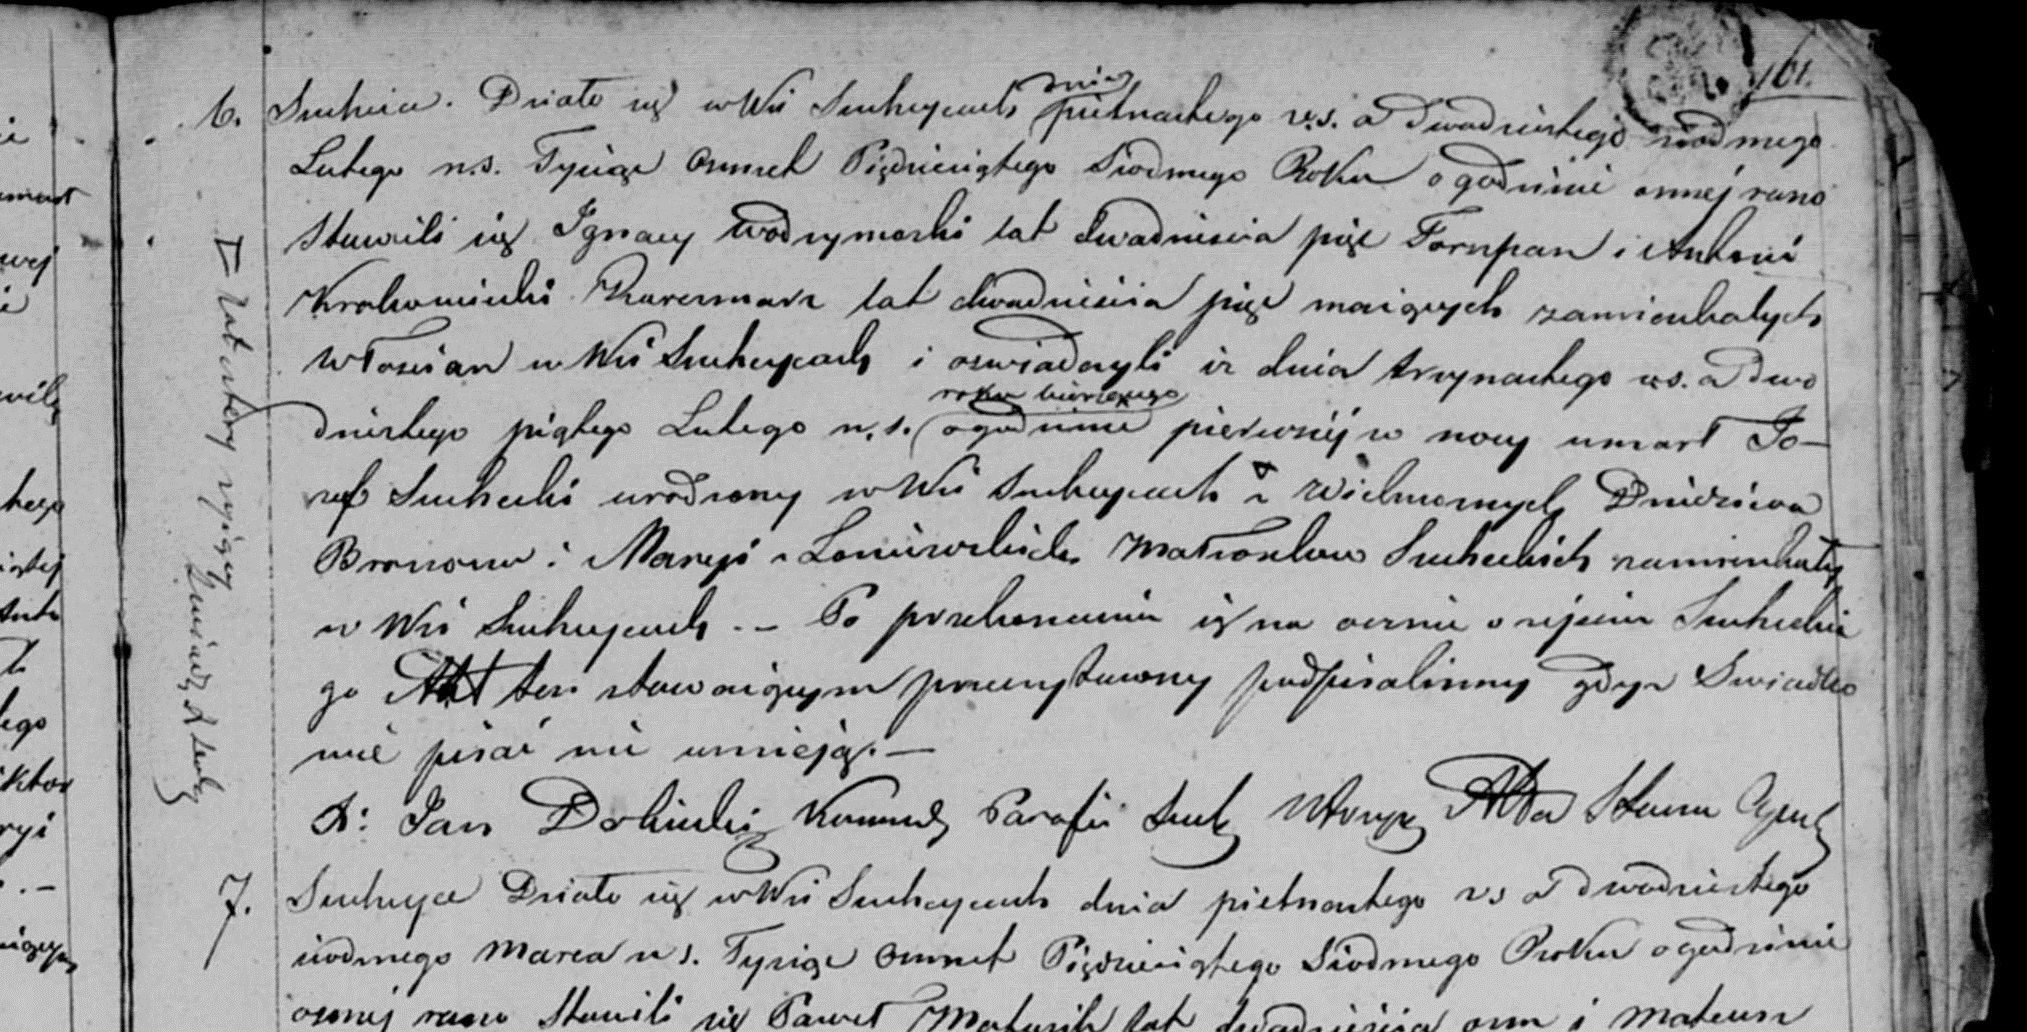 161.
6. Suchcice. Działo się w Wsi Suchcycach dnia piętnastego v.s. a Dwadziestego siodmego
Lutego n.s. Tysiąc Osmset Pięćdziesiątego Siodmego Roku o godzinie osmej rano
Stawili się Ignacy lat dwadziescia pięć Fornpan i Antoni
Krakowiecki Karczmarz lat dwadziescia pięć maiących zamieszkałych
Włoscian w Wsi Suchcycach i oswiadczyli iż dnia trzynastego v.s. a Dwu
dziestego piątego Lutego n.s. roku bieżącego o godzinie pierwszej w nocy umarł Jo-
zef Suchecki urodzony w Wsi Suchcycach z Wielmoznych Dziedzica
i Maryi z Małżonkow Sucheckich zamieszkały
w Wsi Suchcycach. – Po przekonaniu się na ocznie o zejsciu Sucheckie
go Akt ten stawaiącym przeczytawszy podpisalismy gdyz Swiadko
wie pisać nie umieją. –
X: Jan Parafii Such Utrzym Akta Stanu Cywil
lat cztery maiący
7. Suchcyce Działo się w Wsi Suchcycach dnia piętnastego v s a dwadziestego
siodmego Marca n s. Tysiąc Osmset Pięćdziesiątego Siodmego Roku o godzinie
osmej rano Stawili się Paweł Matusik lat dwadziescia osm i Mateusz